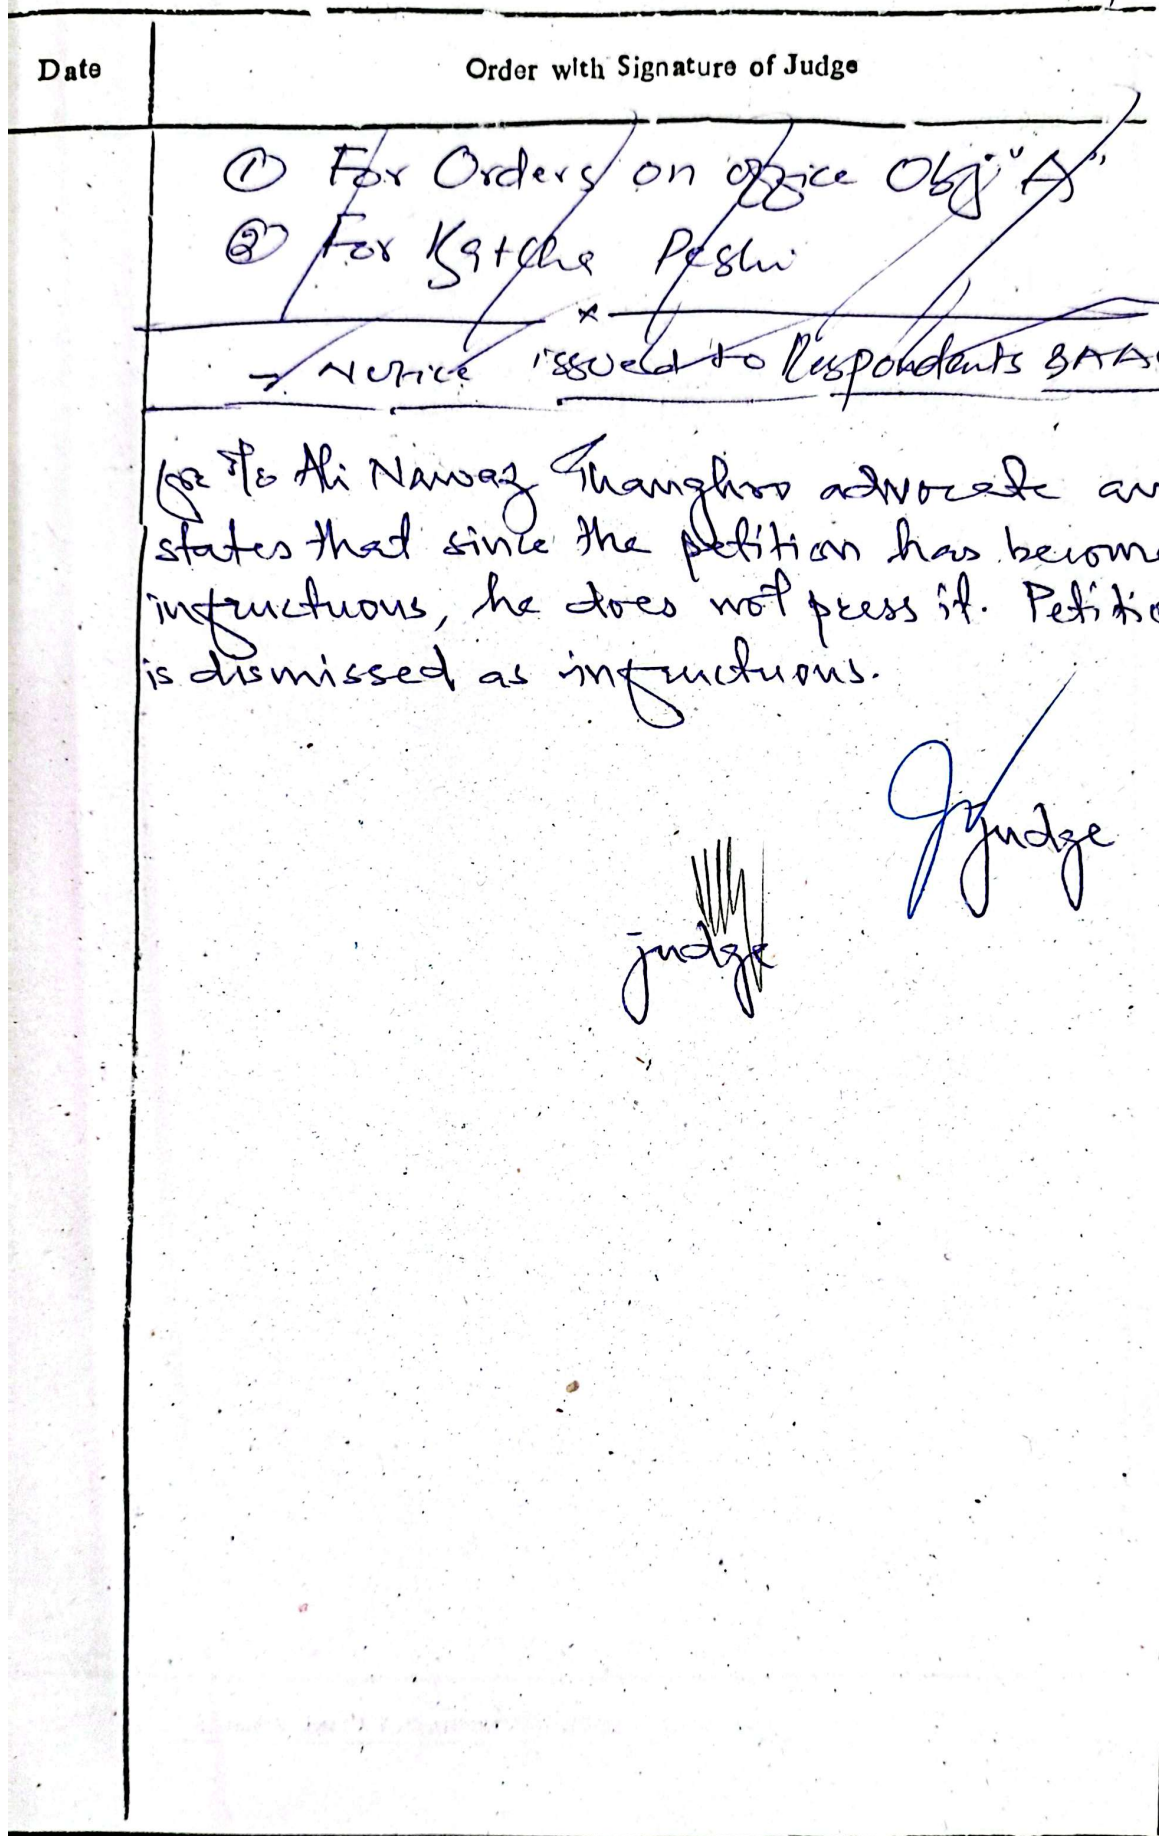 Date
Order with Signature of Judge
① For Orders on office Obj "A"
② For Katcha Peshi
x
Notice issued to Respondents & AAG
Ali Nawaz Ghanghro advocate
states that since the petition has become
infructuous, he does not press it. Petitio
is dismissed as infructuous.
Judge
judge